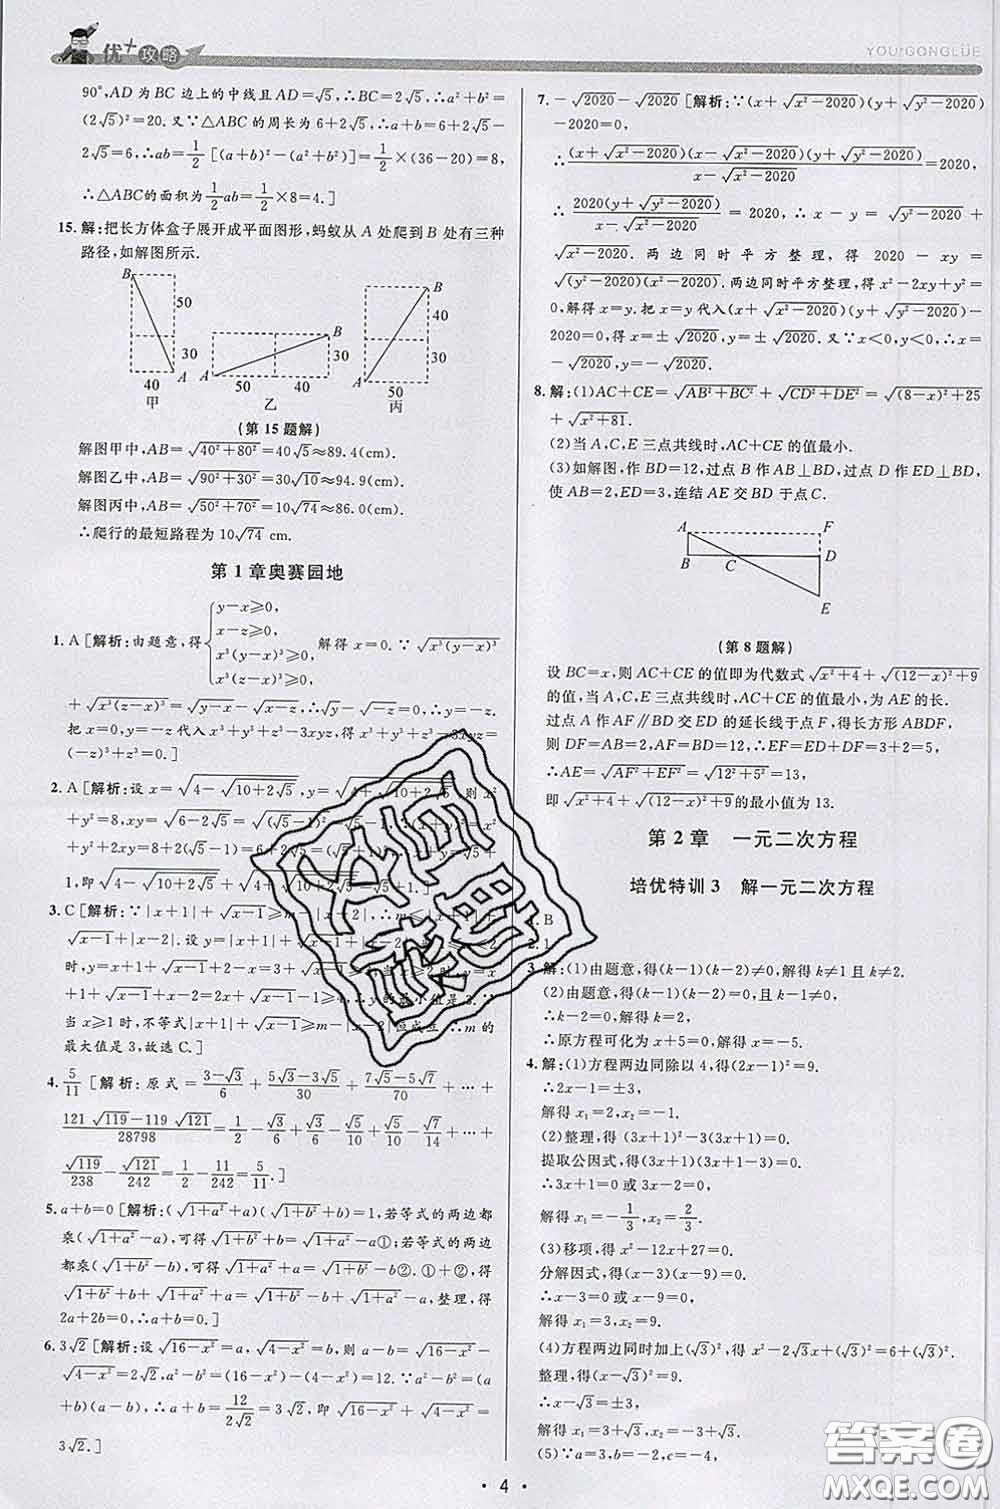 优+攻略
YOU+GONGLÜE
90°,AD为BC边上的中线且AD=√5,∴BC=2√5,∴a²+b²=
(2√5)²=20.又∵△ABC的周长为6+2√5,∴a+b=6+2√5-
2√5=6,∴ab=1/2[(a+b)²-(a²+b²)]=1/2×(36-20)=8,
∴△ABC的面积为1/2ab=1/2×8=4.]
15.解:把长方体盒子展开成平面图形,蚂蚁从A处爬到B处有三种
路径,如解图所示.
B 50 30 40 A 甲
B 40 30 A 50 40 乙
B 40 30 A 50 丙
(第15题解)
解图甲中,AB=√(40²+80²)=40√5≈89.4(cm).
解图乙中,AB=√(90²+30²)=30√10≈94.9(cm).
解图丙中,AB=√(50²+70²)=10√74≈86.0(cm).
∴爬行的最短路程为10√74 cm.
第1章奥赛园地
1.A[解析:由题意,得{y-x≥0, x-z≥0, x³(y-x)³≥0, x³(z-x)³≥0, 解得x=0.∵√(x³(y-x)³)
+√(x³(z-x)³)=√(y-x)-√(x-z),∴√y-√(-z)=0,∴y=-z.
把x=0,y=-z代入x³+y³+z³-3xyz,得x³+y³+z³-3xyz=
(-z)³+z³=0.]
2.A[解析:设x=√(4-√(10+2√5)),y=√(4+√(10+2√5)),则x²
1,即√(4-√(10+2√5))+√(4+√(10+2√5))=√5+1.]
时,y=|x+1|+
当x≥1时,不等式|x+1|+√(x-1)≥m-|x-2|恒成立,∴m的
最大值是3,故选C.]
4.5/11[解析:原式=(3-√3)/6+(5√3-3√5)/30+(7√5-5√7)/70+…+
(121√119-119√121)/28798=1/2-√3/6+√3/6-√5/10+√5/10-√7/14+…+
√119/238-√121/242=1/2-11/242=5/11.]
5.a+b=0[解析:(√(1+a²)+a)(√(1+b²)+b)=1,若等式的两边都
乘(√(1+a²)-a),得√(1+b²)+b=√(1+a²)-a①;若等式的两边
都乘(√(1+b²)-b),得√(1+a²)+a=√(1+b²)-b②.①+②,得
√(1+b²)+b+√(1+a²)+a=√(1+a²)-a+√(1+b²)-b,整理,得
2a+2b=0,∴a+b=0.]
6.3√2[解析:设√(16-x²)=a,√(4-x²)=b,∵√(16-x²)-
√(4-x²)=2√2,∴a-b=2√2,a²-b²=(16-x²)-(4-x²)=12.∵a²-b²=
(a+b)(a-b),∴a+b=12/(2√2)=3√2,即√(16-x²)+√(4-x²)=
3√2.]
7.-√2020-√2020[解析:∵(x+√(x²-2020))(y+√(y²-2020))
-2020=0,
∴(x+√(x²-2020))(x-√(x²-2020))(y+√(y²-2020))/(x-√(x²-2020))=2020,
∴2020(y+√(y²-2020))/(x-√(x²-2020))=2020,∴x-y=√(y²-2020)+
√(x²-2020).两边同时平方整理,得2020-xy=
√((y²-2020)(x²-2020)).两边同时平方整理,得x²-2xy+y²=
0,解得x=y.把x=y代入(x+√(x²-2020))(y+√(y²-2020))
-2020=0,得x=±√2020,y=±√2020.又∵x≠√2020,∴x=
-√2020,y=-√2020.]
8.解:(1)AC+CE=√(AB²+BC²)+√(CD²+DE²)=√((8-x)²+25)
+√(x²+81).
(2)当A,C,E三点共线时,AC+CE的值最小.
(3)如解图,作BD=12,过点B作AB⊥BD,过点D作ED⊥BD,
使AB=2,ED=3,连结AE交BD于点C.
A F B C D E
(第8题解)
设BC=x,则AC+CE的值即为代数式√(x²+4)+√((12-x)²+9)
的值,当A,C,E三点共线时,AC+CE的值最小,为AE的长.
过点A作AF∥BD交ED的延长线于点F,得长方形ABDF,
则DF=AB=2,AF=BD=12,∴EF=ED+DF=3+2=5,
∴AE=√(AF²+EF²)=√(12²+5²)=13,
即√(x²+4)+√((12-x)²+9)的最小值为13.
第2章 一元二次方程
培优特训3 解一元二次方程
1.B
2.1
3.解:(1)由题意,得(k-1)(k-2)≠0,解得k≠1且k≠2.
(2)由题意,得(k-1)(k-2)=0,且k-1≠0,
∴k-2=0,解得k=2,
∴原方程可化为x+5=0,解得x=-5.
4.解:(1)方程两边同除以4,得(2x-1)²=9.
∴2x-1=±3,
解得x₁=2,x₂=-1.
(2)整理,得(3x+1)²-3(3x+1)=0.
提取公因式,得(3x+1)(3x+1-3)=0.
∴3x+1=0或3x+1-3=0,
解得x₁=-1/3,x₂=2/3.
(3)移项,得x²-12x+27=0.
分解因式,得(x-3)(x-9)=0.
∴x-3=0或x-9=0,
解得x₁=3,x₂=9.
(4)方程两边同时加上(√3)²,得x²-2√3x+(√3)²=6+(√3)².
整理,得(x-√3)²=9.
∴x-√3=±3,
解得x₁=√3+3,x₂=√3-3.
(5)∵a=2,b=-4,c=-1,
· 4 ·
答案圈
MXQE.COM